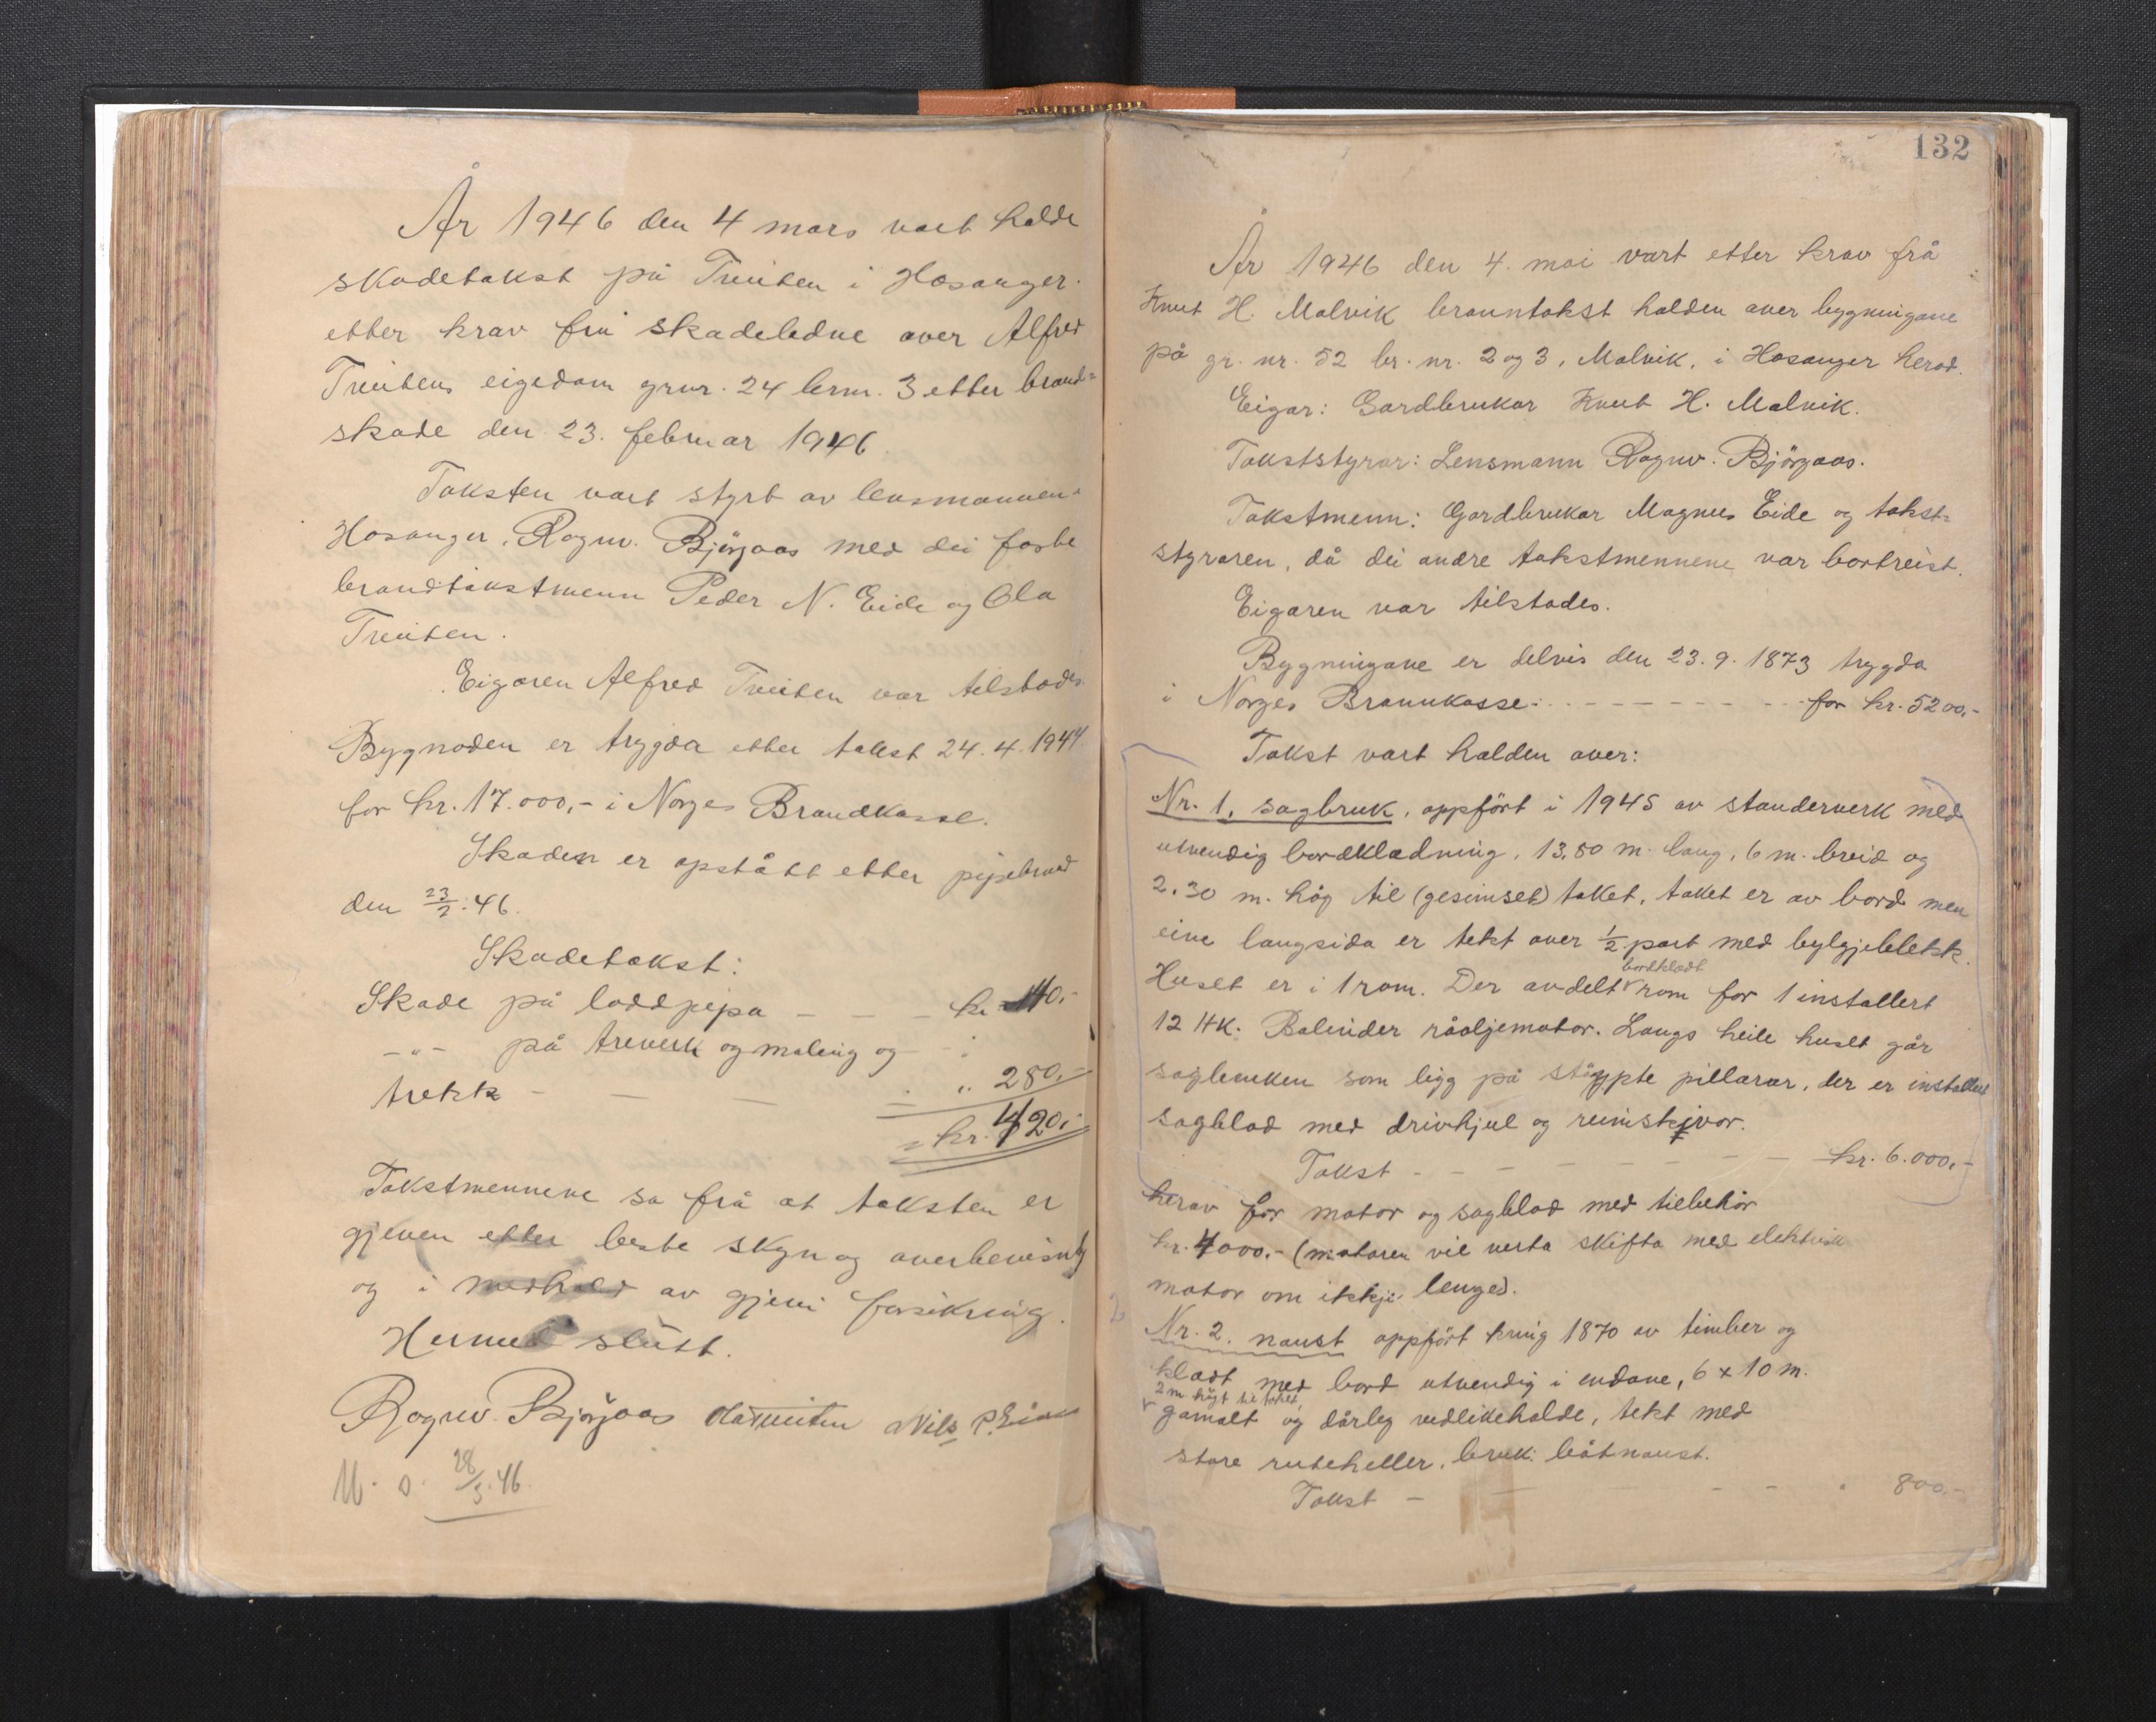 År 1946 den 4 mars vart halde
skadetakst på Tveiten i Hosanger
etter krav frå skadelidne over Alfred
Tveitens eigedom grnr. 24 brnr. 3 etter brand=
skade den 23. februar 1946
Taksten vart styrt av lensmannen i
Hosanger, Ragnv. Bjørgaas med dei faste
brandtakstmenn Peder N. Eide og Ola
Tveiten.
Eigaren Alfred Tveiten var tilstades
Bygnaden er trygda etter takst 24.4.1944
for kr. 17.000,- i Norges Brandkasse.
Skaden er opstått etter pipebrand
den 23/2.46.
Skadetakst:
Skade på loddpipa - - - kr 140,-
-"- på treverk og maling og
trekk - - - - " 280,-
kr. 420,-
Takstmennene sa frå at taksten er
gjeven etter beste skyn og overbevisning
og i medhald av gjeve forsikring.
Hermed slutt.
Ragnv. Bjørgaas Ola Tveiten Nils P. Eide
U. o. 28/3.46
132
År 1946 den 4. mai vart etter krav frå
Knut H. Malvik branntakst halden over bygningane
på gr. nr. 52 br. nr. 2 og 3, Malvik, i Hosanger herad.
Eigar: Gardbrukar Knut H. Malvik.
Takststyrar: Lensmann Ragnv. Björgaas.
Takstmenn: Gardbrukar Magnus Eide og takst=
styraren, då dei andre takstmennene var bortreist.
Eigaren var tilstades.
Bygningane er delvis den 23.9.1873 trygda
i Norges Brannkasse: - - - - - - for kr. 5200,-
Takst vart halden over:
Nr. 1, sagbruk, oppfört i 1945 av standerverk med
utvendig bordkledning, 13,80 m. lang, 6 m. breid og
2.30 m. høg til (gesimset) taket, taket er av bord men
eine langsida er tekt over 1/2 part med bylgjeblekk.
Huset er i 1 rom. Der avdelt bordkledt rom for 1 installert
12 HK. Bolinder råoljemotor. Langs heile huset går
sagbenken som ligg på stöypte pillarar, der er installert
sagblad med drivhjul og reimskivor.
Takst - - - - - - - kr. 6.000,-
herav for motor og sagblad med tilbehör
kr. 4000.- (motoren vil verta skifta med elektrisk
motor om ikkje lenge).
Nr. 2. naust oppfört kring 1870 av timber og
kledt med bord utvendig i endane, 6 x 10 m.
2 m högt til taket,
gamalt og dårleg vedlikehalde, tekt med
store ruteheller, bruk: båtnaust.
Takst - - - - " 800,-